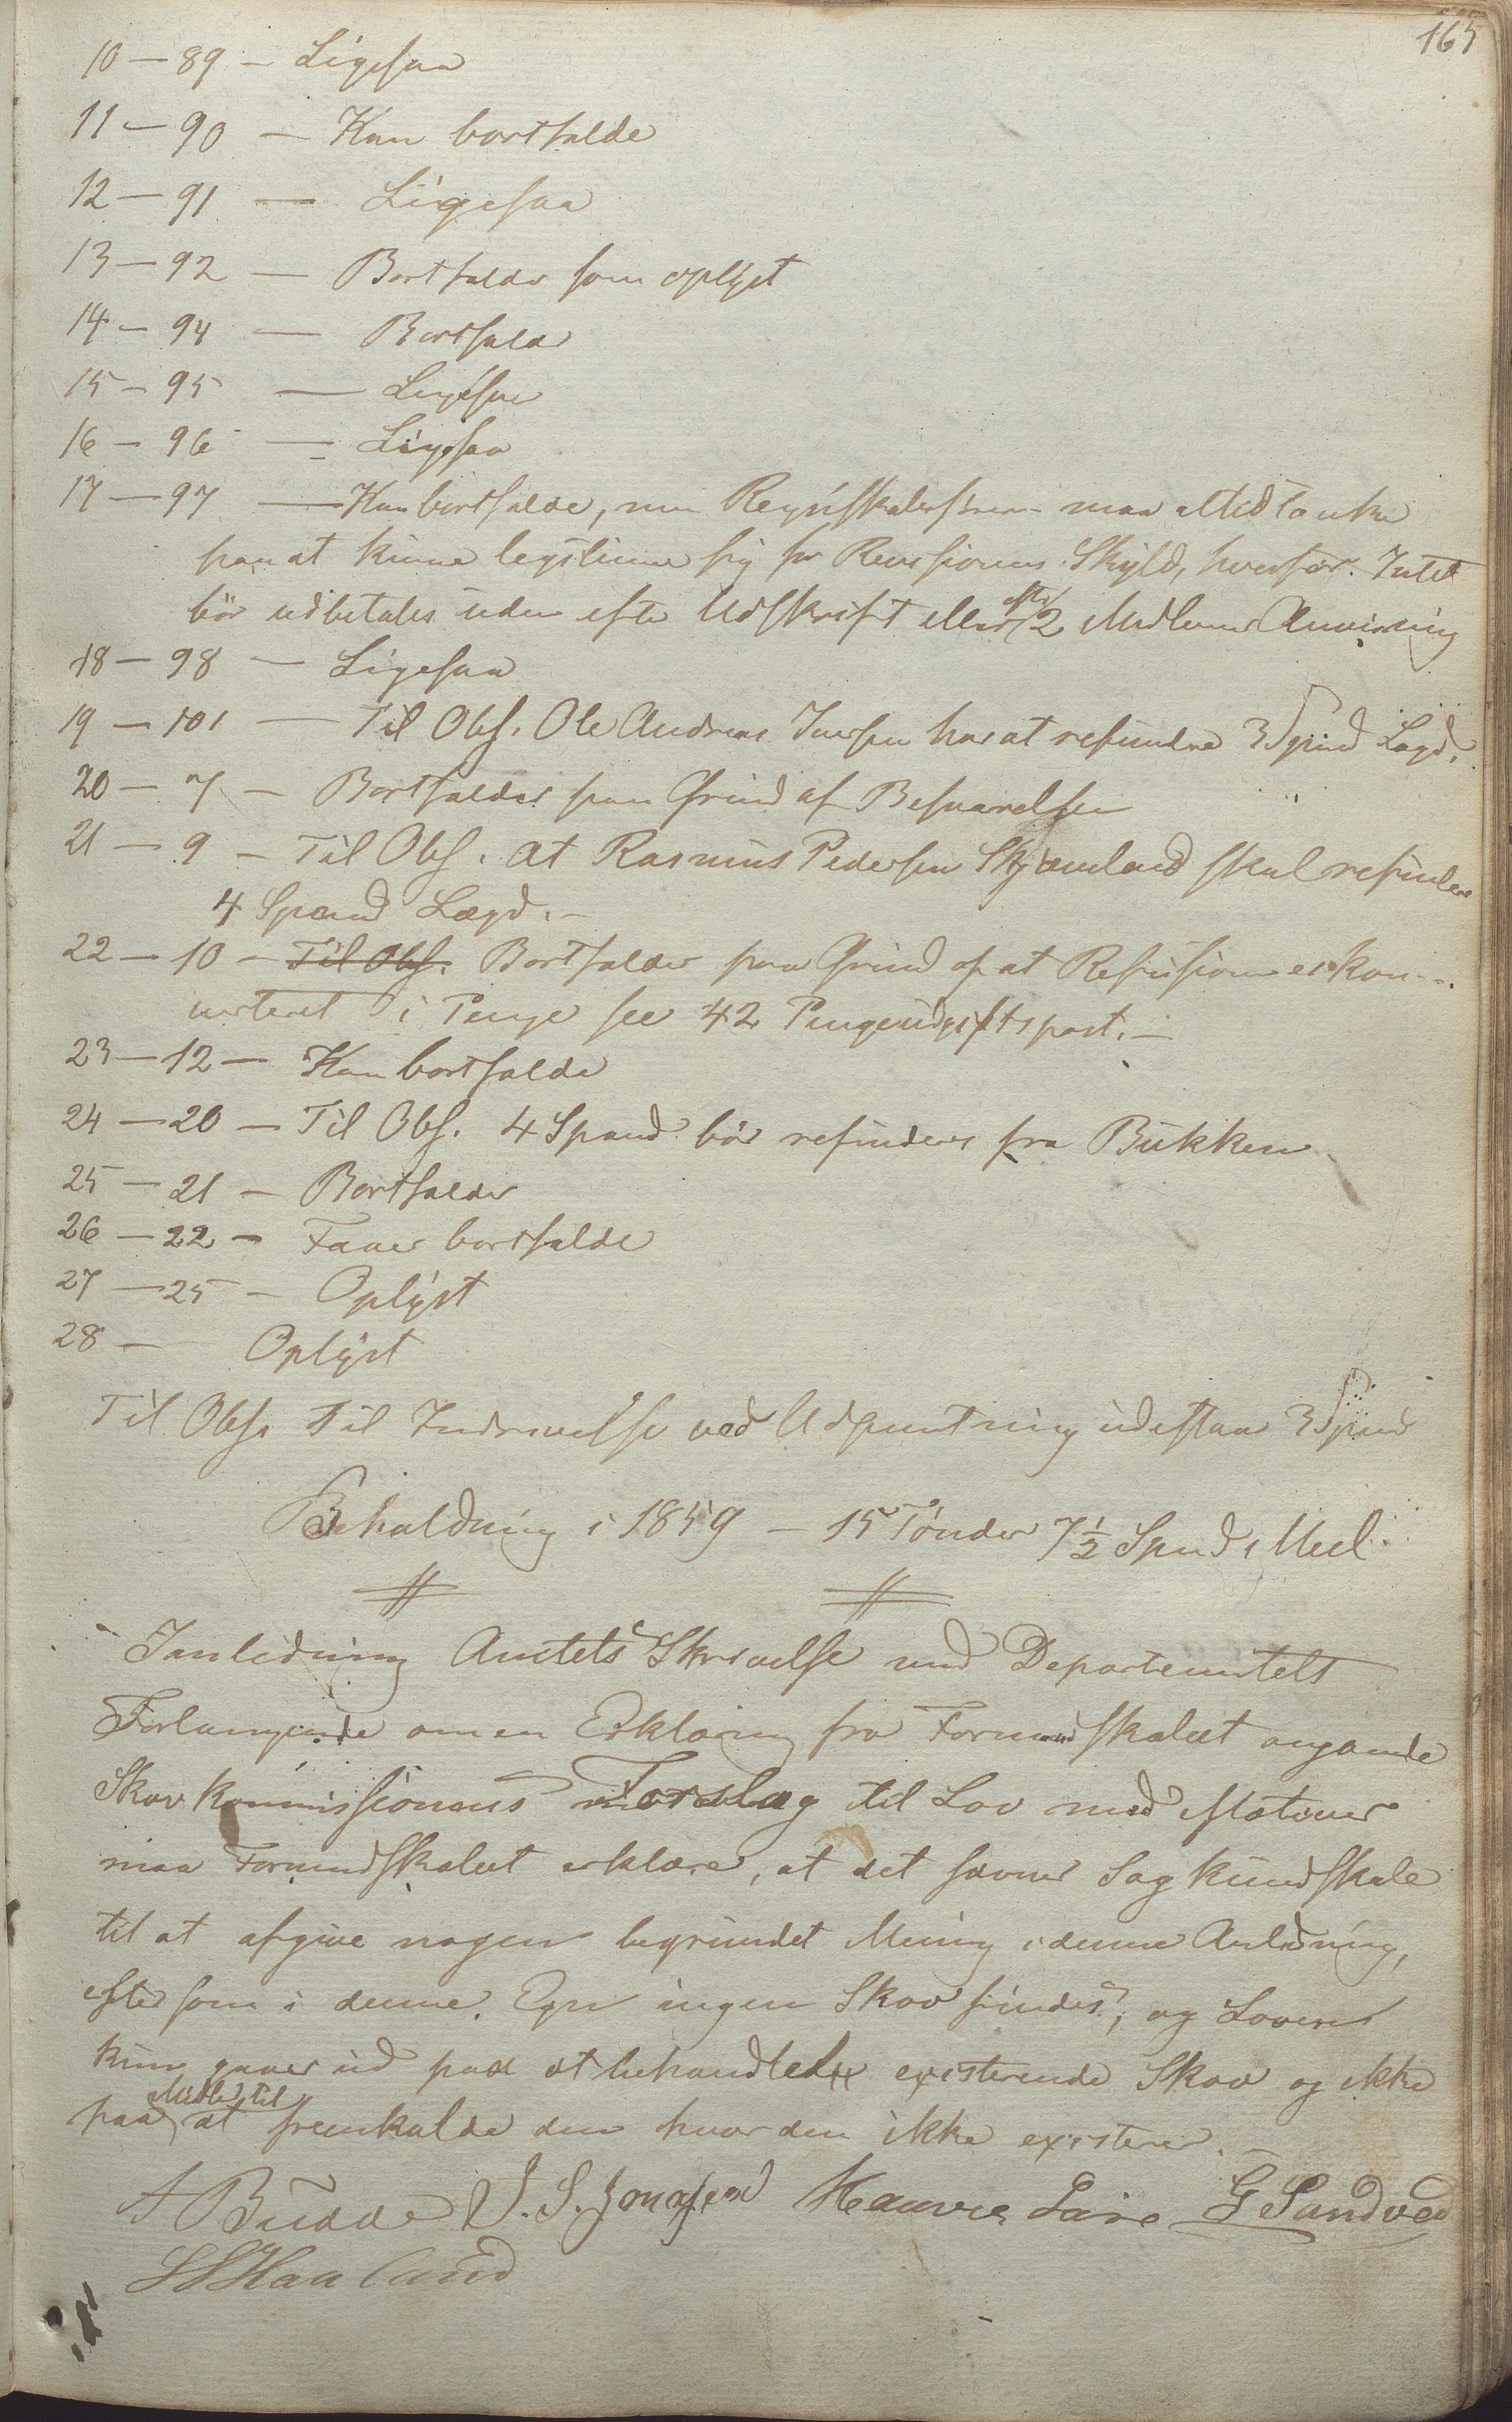 165
10 — 89 — Ligesaa
11 — 90 — Kan bortfalde
12 — 91 — Ligesaa
13 — 92 — Bortfalder som oplyst
14 — 94 — Bortfalder
15 — 95 — Ligesaa
16 — 96 — Ligesaa
17 — 97 — Kan bortfalde, men Regnskabsføreren maa altid tænke
paa at kunne legitimere sig for Revisionens Skyld, hvorfor Intet
bør udbetales uden efter Udskrift eller efter 2 Medlemmers Anvisning
18 — 98 — Ligesaa
19 — 101 — Til Obs. Ole Andreas Iversen har at refundere 3 Spand Lægd.
20 — 7 — Bortfalder paa Grund af Besvarelsen
21 — 9 — Til Obs. at Rasmus Pedersen Skjæveland skal refundere
4 Spand Lægd. —
22 — 10 — Til Obs. Bortfalder paa Grund af at Refusionen er kon-
verteret i Penge see 42 Pengeudgiftspost. —
23 — 12 — Kan bortfalde
24 — 20 — Til Obs. 4 Spand bør refunderes fra Bukken
25 — 21 — Bortfalder
26 — 22 — Faaer bortfalde
27 — 25 — Oplyst
28 — Oplyst
Til Obs. Til Inddrivelse ved Udpantning udestaar 3 Spand
Beholdning i 1859 — 15 Tønder 7½ Spand Meel
I Anledning Amtets Skrivelse med Departementets
Forlangende om en Erklæring fra Formandskabet angaaende
Skovkommissionens Forslag til Lov med Motiver
maa Formandskabet erklære, at det savner Sagkundskab
til at afgive nogen begrundet Mening i denne Anledning,
eftersom i denne Egn ingen Skov findes, og Loven
kun gaaer ud paa at behandle existerende Skov og ikke
paa Midler til at fremkalde den hvor den ikke existerer. —
A Budde J. S. Jonassen Haavre G Sandved
Haaland